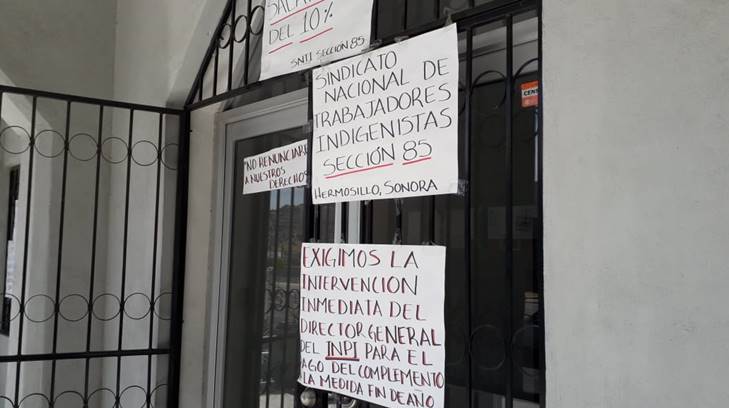 DEL 10%
SNTI SECCIÓN 85
SINDICATO
NACIONAL DE
TRABAJADORES
INDIGENISTAS
SECCIÓN 85
HERMOSILLO, SONORA
"NO RENUNCIARE
A NUESTROS
DERECHOS
EXIGIMOS LA
INTERVENCION
INMEDIATA DEL
DIRECTOR GENERAL
DEL INPI PARA EL
AGO DEL COMPLEMENTO
LA MEDIDA FIN DE AÑO